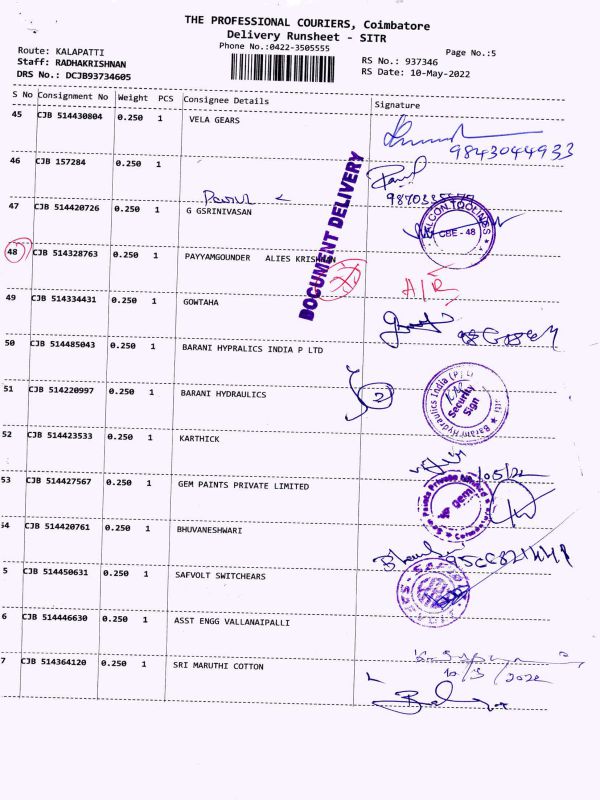 THE PROFESSIONAL COURIERS, Coimbatore
Delivery Runsheet - SITR
Phone No.:0422-3505555
Page No.:5
Route: KALAPATTI
Staff: RADHAKRISHNAN
DRS No.: DCJB93734605
RS No.: 937346
RS Date: 10-May-2022
S No Consignment No Weight PCS Consignee Details Signature
45 CJB 514430804 0.250 1 VELA GEARS
9843044933
46 CJB 157284 0.250 1
47 CJB 514420726 0.250 1 G GSRINIVASAN
CBE - 48
DOCUMENT DELIVERY
48 CJB 514328763 0.250 1 PAYYAMGOUNDER ALIES KRISHNAN
A/R
49 CJB 514334431 0.250 1 GOWTAHA
50 CJB 514485043 0.250 1 BARANI HYPRALICS INDIA P LTD
51 CJB 514220997 0.250 1 BARANI HYDRAULICS
2
Barany Hydraulics India (P) L
Security
Sign
52 CJB 514423533 0.250 1 KARTHICK
53 CJB 514427567 0.250 1 GEM PAINTS PRIVATE LIMITED
gem
54 CJB 514420761 0.250 1 BHUVANESHWARI
5 CJB 514450631 0.250 1 SAFVOLT SWITCHEARS
6 CJB 514446630 0.250 1 ASST ENGG VALLANAIPALLI
10/5/2022
7 CJB 514364120 0.250 1 SRI MARUTHI COTTON